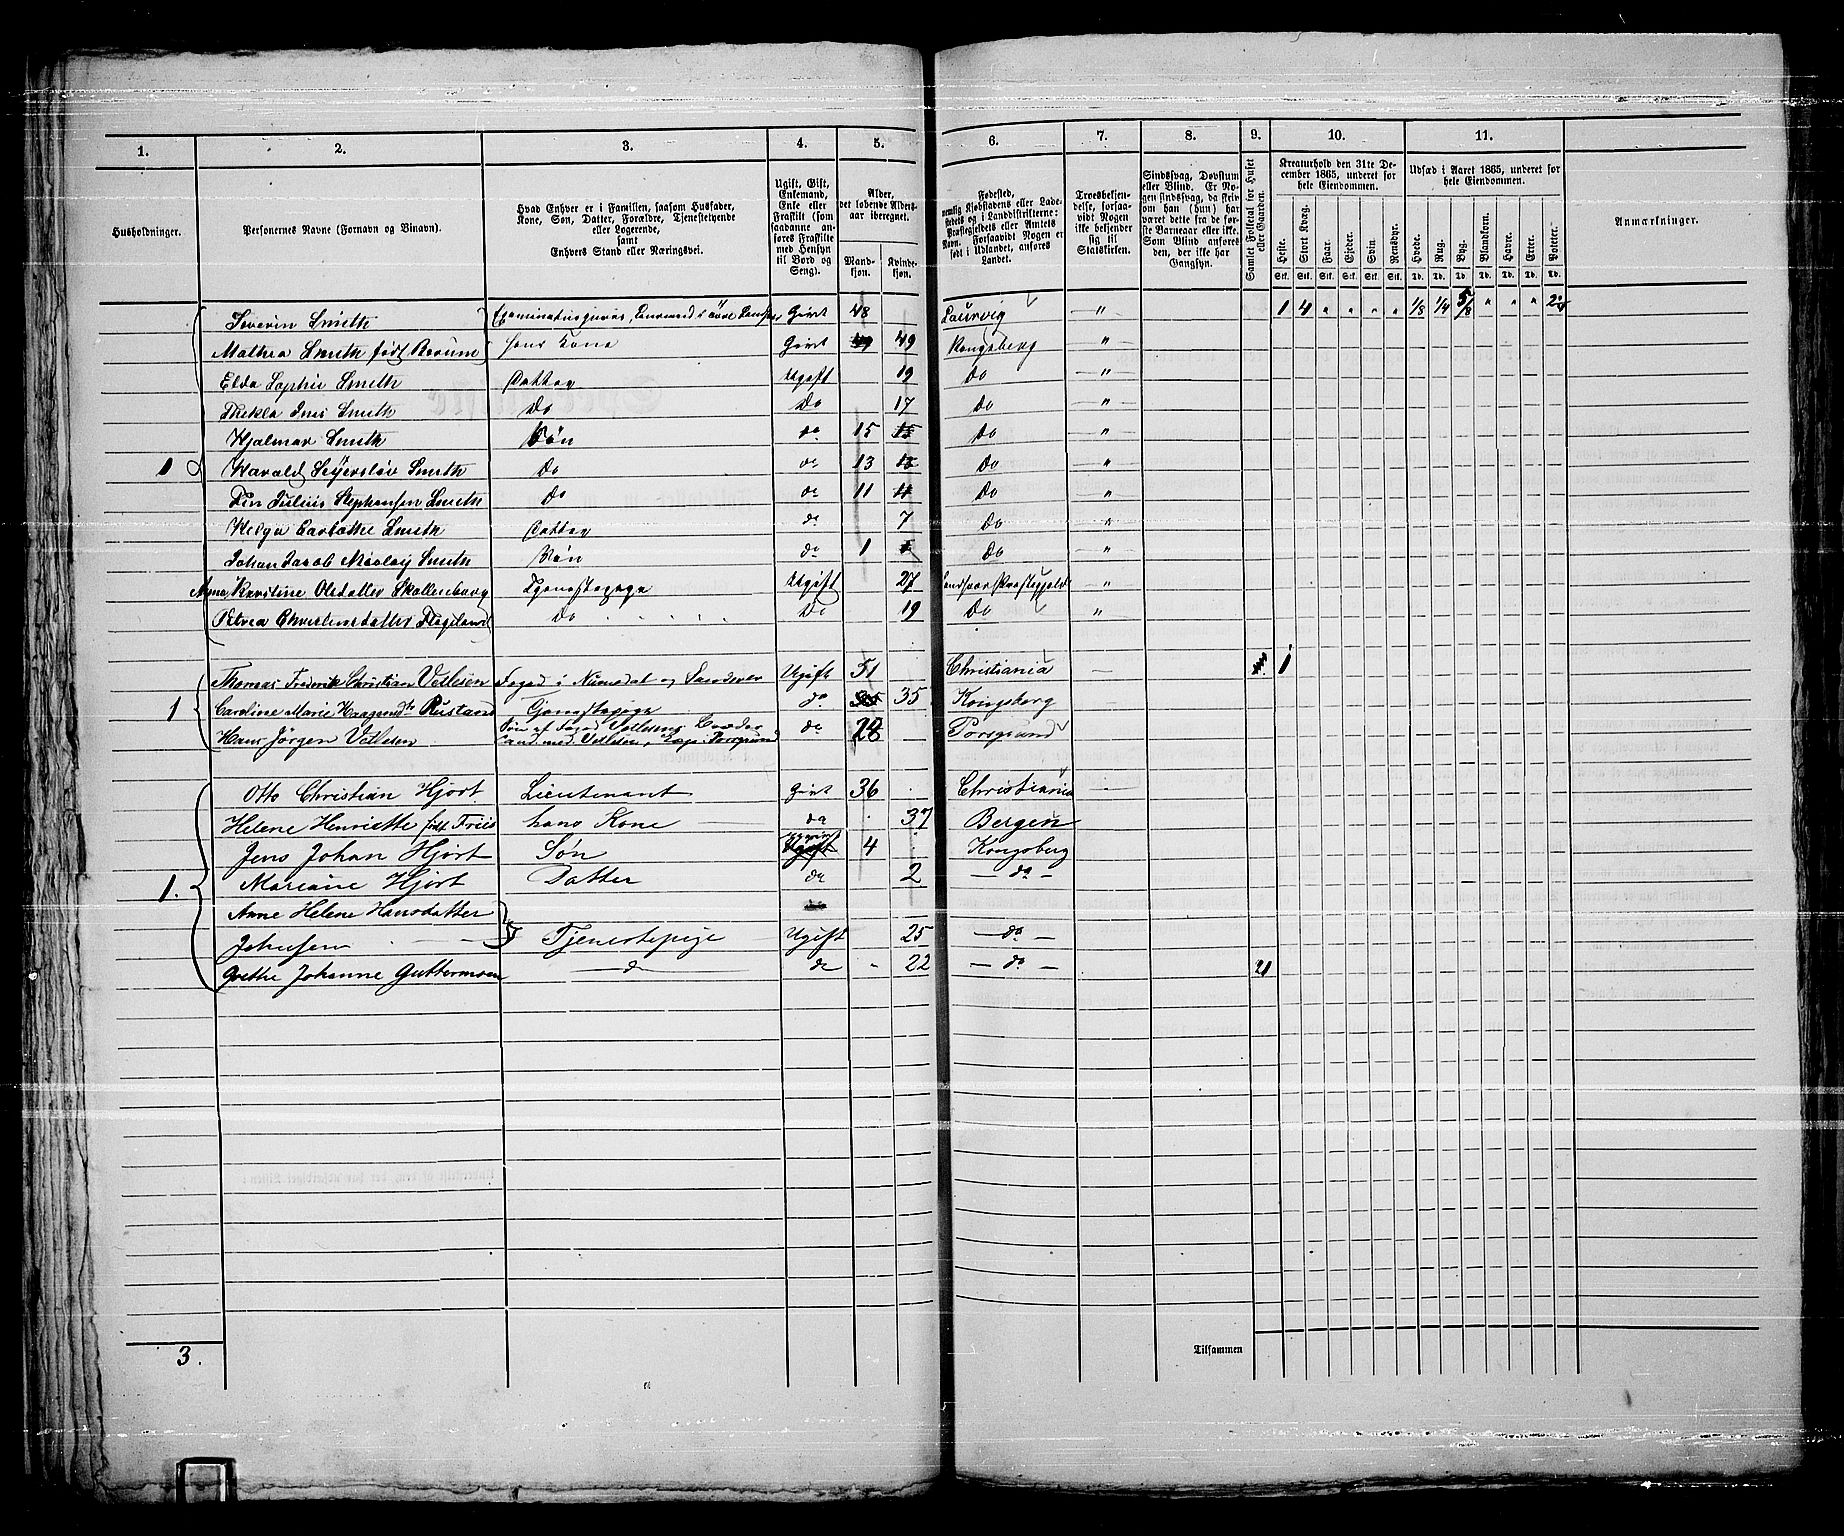 1. 2. 3. 4. 5. 6. 7. 8. 9. 10. 11.
Husholdninger.
Personernes Navne (Fornavn og Binavn).
Hvad Enhver er i Familien, saasom Husfader,
Kone, Søn, Datter, Forældre, Tjenestetyende
eller Logerende,
samt
Enhvers Stand eller Næringsvei.
Ugift, Gift,
Enkemand,
Enke eller
Fraskilt (som
saadanne an-
føres Fraskilte
med Hensyn
til Bord og
Seng).
Alder,
det løbende Alders-
aar iberegnet.
Mand-
kjøn.
Kvinde-
kjøn.
Fødested,
nemlig Kjøbstadens eller Lade-
stedets og i Landdistrikterne:
Præstegjeldets eller Amtets
Navn. Forsaavidt Nogen er
født i Udlandet, anføres
Landet.
Troesbekjen-
delse, forsaa-
vidt Nogen
ikke bekjender
sig til
Statskirken.
Sindssvag, Døvstum
eller Blind. Er No-
gen sindssvag, da skriv
om han (hun) har
været dette fra de før-
ste Barneaar eller ikke.
Som Blind anføres
den, der ikke har
Gangsyn.
Samlet Folketal for Huset
eller Gaarden.
Kreaturhold den 31te De-
cember 1865, underet for
hele Eiendommen.
Heste. Stort Kvæg. Faar. Gjeder. Svin. Rensdyr.
Stk. Stk. Stk. Stk. Stk. Stk.
Udsæd i Aaret 1865, underet for
hele Eiendommen.
Hvede. Rug. Byg. Blandkorn. Havre. Erter. Poteter.
Td. Td. Td. Td. Td. Td. Td.
Anmærkninger.
Severin Smith Givt 48 Laurvig " 1 4 " " " " 1/8 1/4 5/8 " " "
Mathea Smith født Borum hans Kone Givt 49 Kongsberg "
Elda Sophie Smith Datter Ugift 19 Do "
Thekla Inis Smith Do Do 17 Do "
Hjalmar Smith Søn do 15 Do "
1 Harald Seyersløv Smith Do do 13 Do "
Fin Julius Stephansen Smith Do do 11 Do "
Helga Carlotte Smith Datter do 7 Do "
Johan Jacob Nicolay Smith Søn do 1 Do "
Anne Karstine Olsdatter Skollenborg Tjenestepige Ugift 27 Sandsvær Præstegjeld "
Petrea Christensdatter Do Do 19 Do "
Thomas Frederik Christian Vetlesen Foged i Numedal og Sandsvær Ugift 51 Christiania 1
1 Caroline Marie Haagensdtr Rustand Tjenestepige do 35 Kongsberg
Hans Jörgen Vetlesen Søn af Foged Vetlesens Broder do 28 Porsgrund
Otto Christian Hjort Lieutenant Givt 36 Christiania
Helene Henriette født Friis hans Kone do 37 Bergen
Jens Johan Hjort Søn 4 Kongsberg
1. Mariane Hjort Datter do 2 do
Anne Helene Hansdatter
Johnsen Tjenestepige Ugift 25 do
Grethe Johanne Guttormsen do 22 do 21
3.
Tilsammen